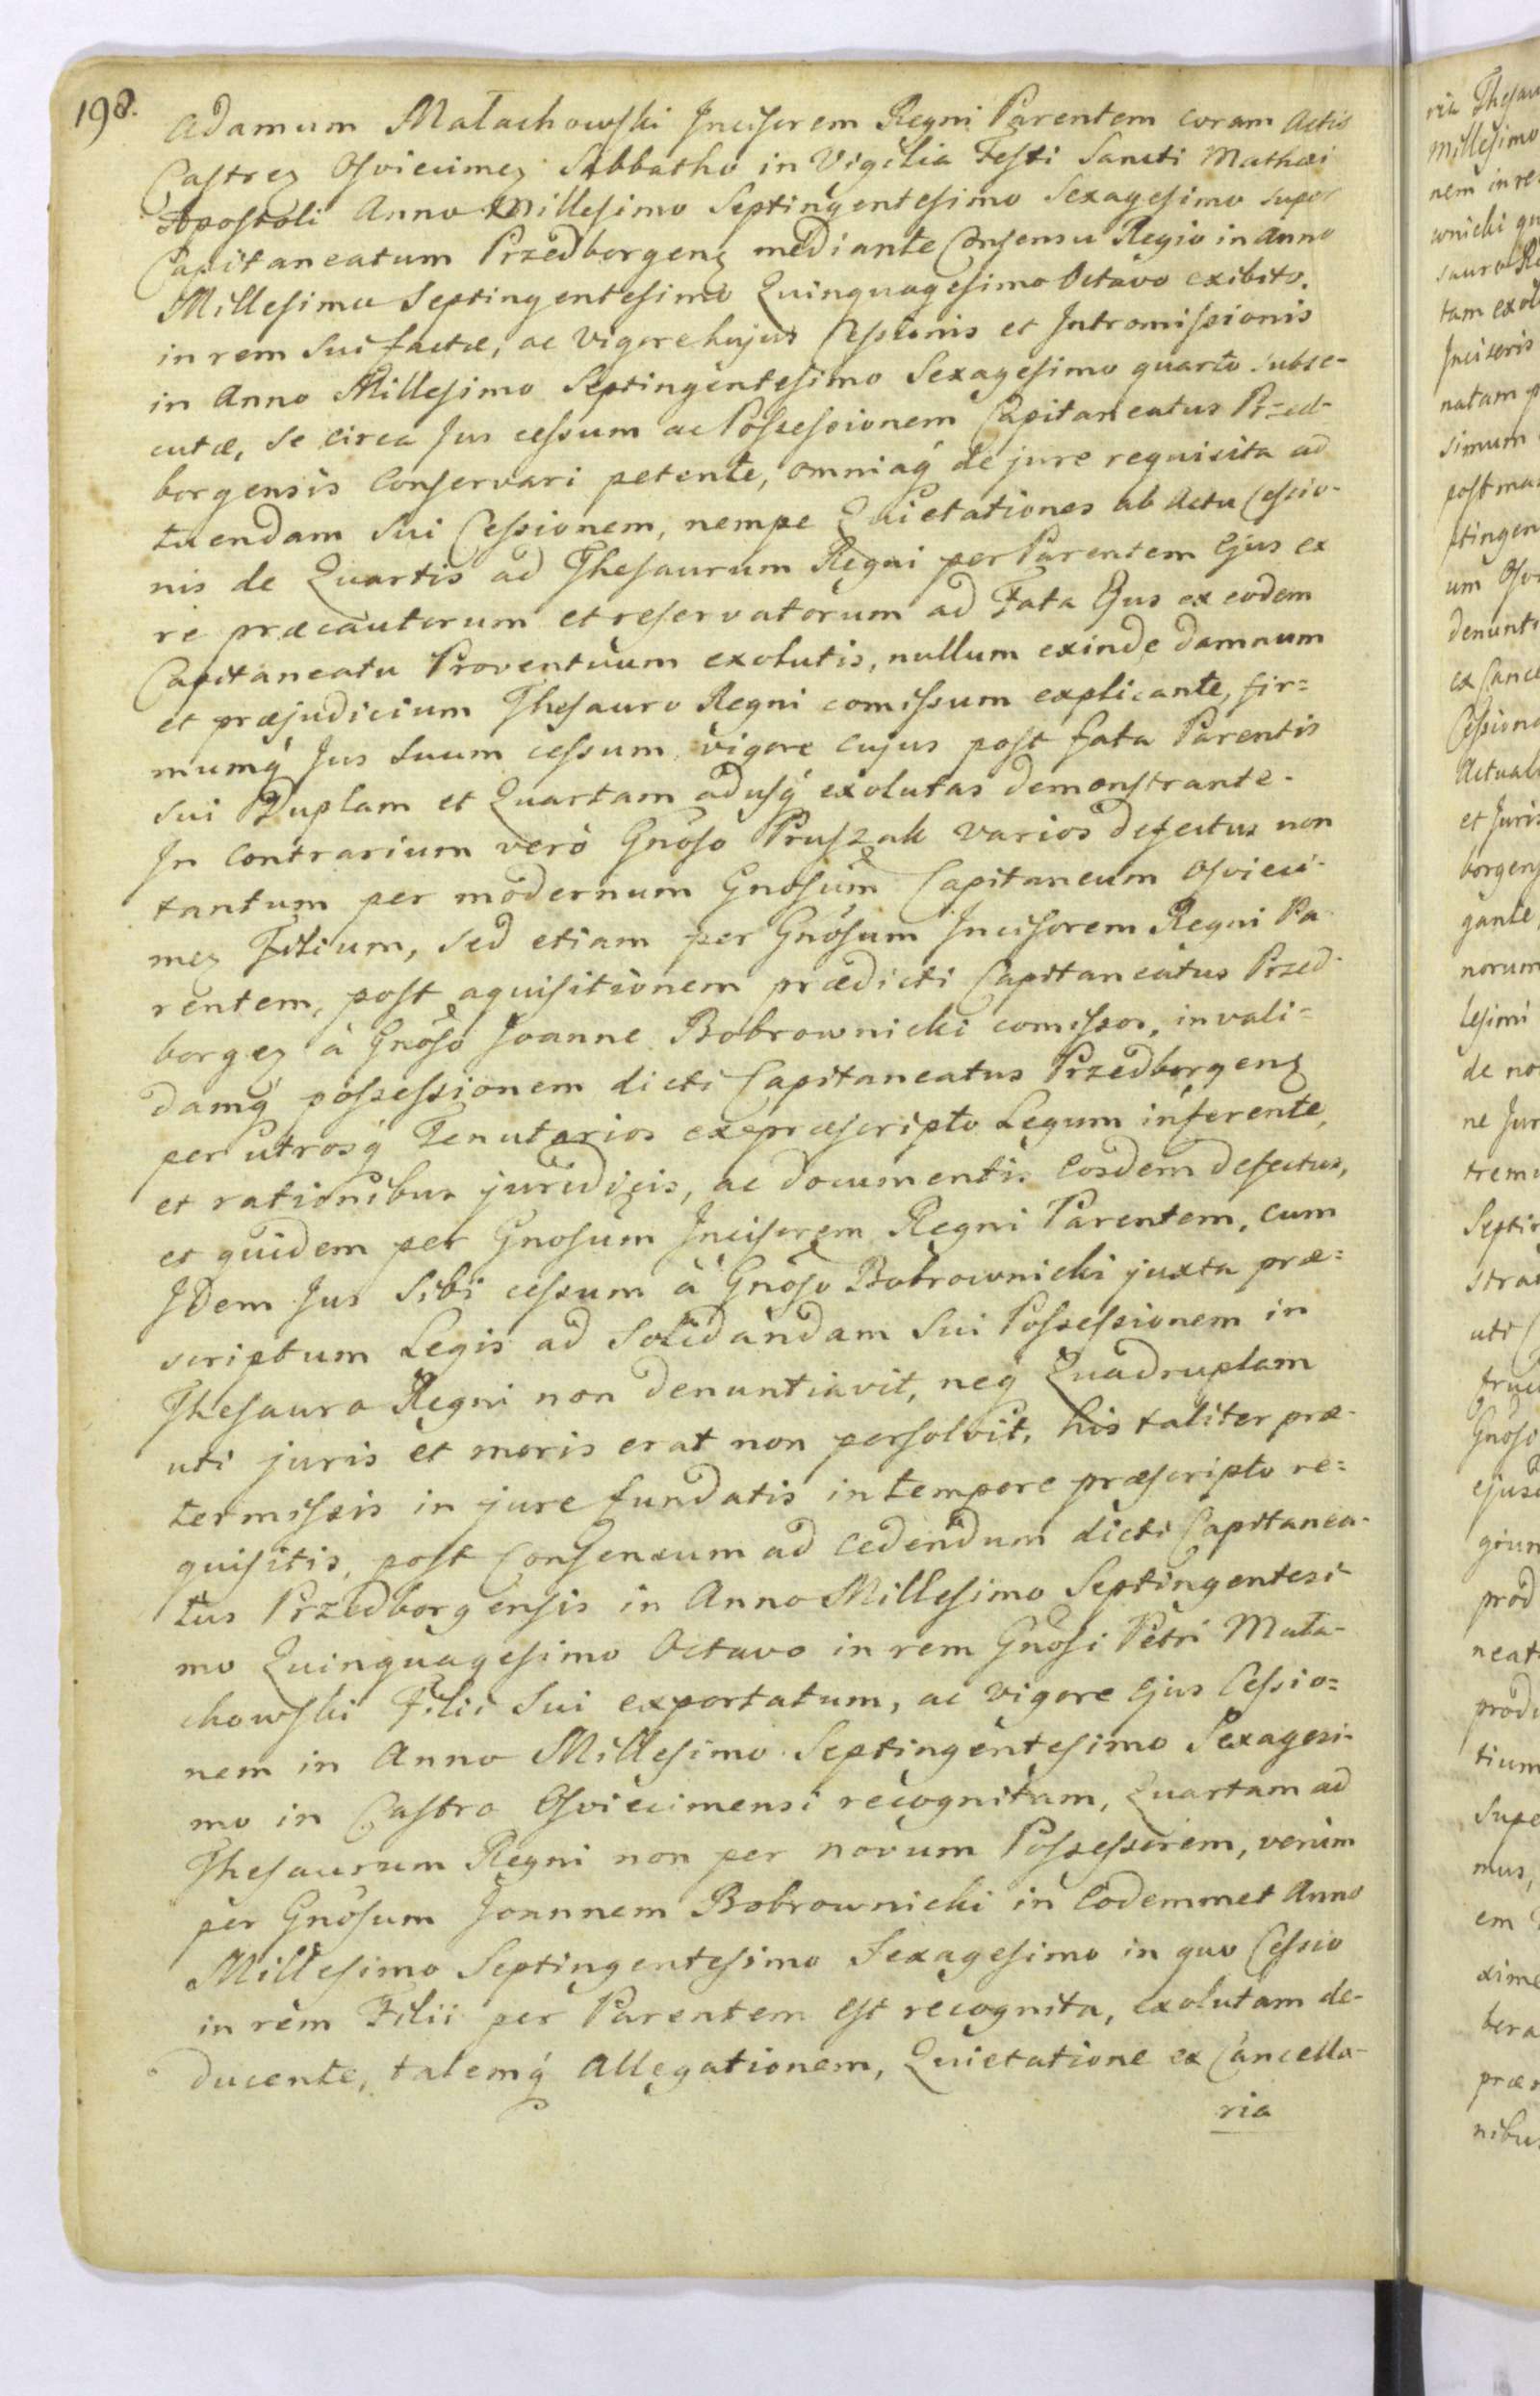 198.
Adamum Małachowski Incisorem Regni Parentem coram Actis
Castreƺ Osviecimeƺ Sabbatho in Vigilia Festi Sancti Mathæi
Apostoli Anno Millesimo Septingentesimo Sexagesimo super
Capitaneatum Przedborgenƺ mediante Consensu Regio in Anno
Millesimo Septingentesimo Quinquagesimo Octavo exibito.
in rem sui factæ, ac vigore hujus Cessionis et Intromissionis
in Anno Millesimo Septingentesimo Sexagesimo quarto subse-
cutæ, se circa Jus cessum ac Possessionem Capitaneatus Przed-
borgensis conservari petente, omniaq́ de jure requisita ad
tuendam sui Cessionem, nempe Quietationes ab Actu Cessio-
nis de Quartis ad Thesaurum Regni per Parentem Ejus ex
re præcautorum et reservatorum ad Fata Ejus ex eodem
Capitaneatu Proventuum exolutis, nullum exinde damnum
et præjudicium Thesauro Regni comissum explicante, fir=
mumq́ Jus suum cessum, vigore cujus post fata Parentis
sui Duplam et Quartam adusq́ exolutas demonstrante.
In contrarium verò Gnoso Pruszak varios defectus non
tantum per modernum Gnosum Capitaneum Osvieci-
meƺ Filium, sed etiam per Gnosum Incisorem Regni Pa
rentem, post aquisitionem prædicti Capitaneatus Przed-
borgeƺ à Gnoso Joanne Bobrownicki comissos, invali=
damq́ possessionem dicti Capitaneatus Przedborgenƺ
per utrosq́ Tenutarios ex præscripto Legum inferente,
et rationibus juridicis, ac documentis eosdem defectus,
et quidem per Gnosum Incisorem Regni Parentem, cum
Idem Jus sibi cessum à Gnoso Bobrownicki juxta præ=
scriptum Legis ad solidandam sui Possessionem in
Thesauro Regni non denuntiavit, neq́ Quadruplam
uti juris et moris erat non persolvit, his taliter præ-
termissis in jure fundatis in tempore præscripto re=
quisitis, post Consensum ad cedendum dicti Capitanea-
tus Przedborgensis in Anno Millesimo Septingentesi
mo Quinquagesimo Octavo in rem Gnosi Petri Mała-
chowski Filii sui exportatum, ac vigore Ejus Cessio=
nem in Anno Millesimo Septingentesimo Sexagesi-
mo in Castro Osviecimensi recognitam, Quartam ad
Thesaurum Regni non per novum Possessorem, verùm
per Gnosum Joannem Bobrownicki in Eodemmet Anno
Millesimo Septingentesimo Sexagesimo in quo Cessio
in rem Filii per Parentem est recognita, exolutam de-
ducente, talemq́ Allegationem, Quietatione ex Cancella-
ria